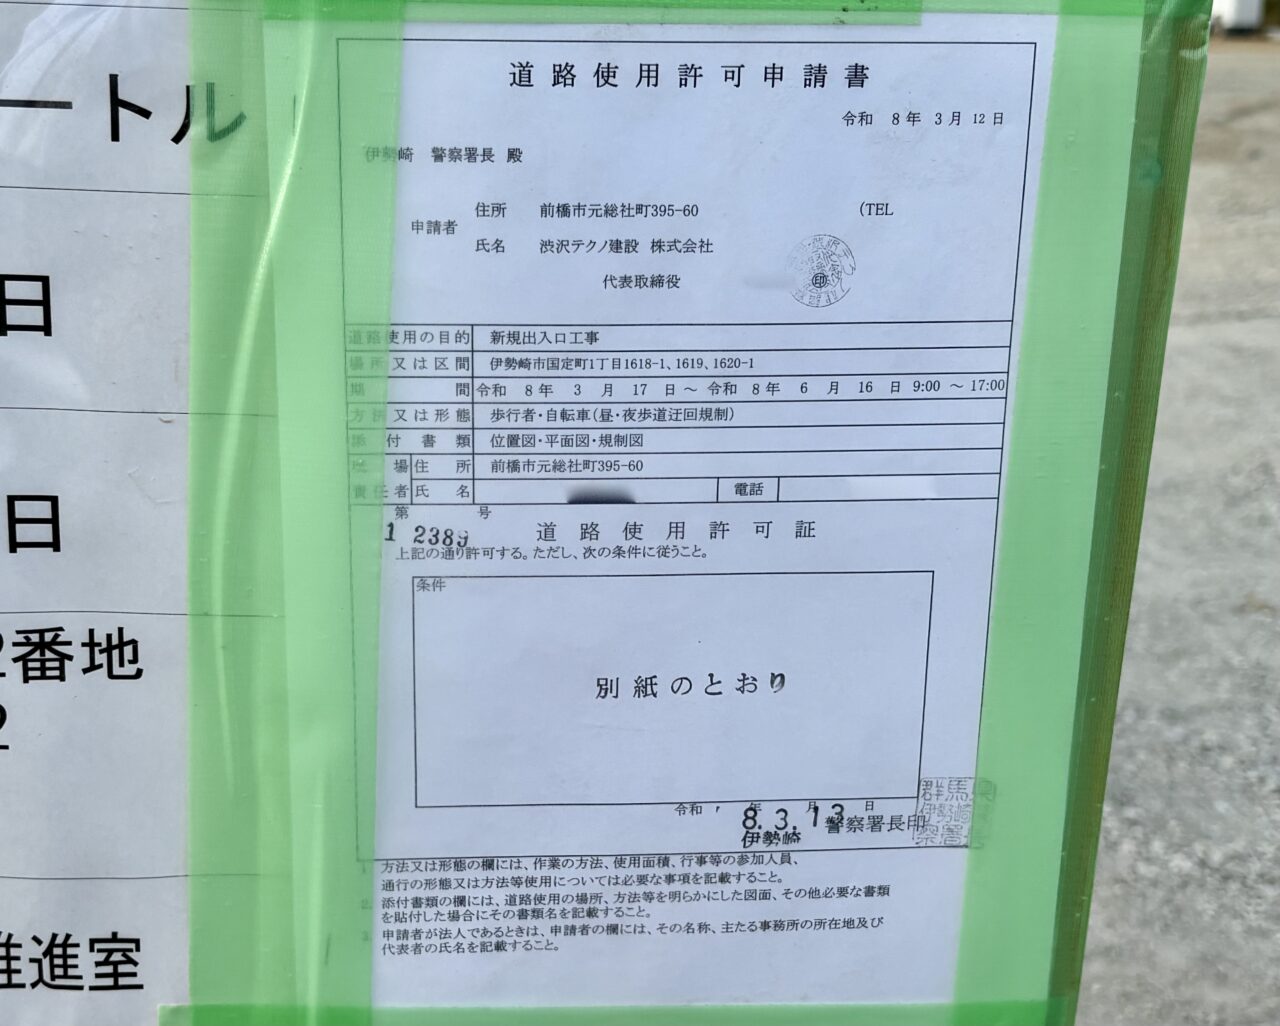 ートル
日
日
2番地
2
推進室
道路使用許可申請書
令和 8年 3月 12日
伊勢崎 警察署長 殿
申請者
住所 前橋市元総社町395-60 (TEL
氏名 渋沢テクノ建設 株式会社
代表取締役
印
道路使用の目的 新規出入口工事
場所又は区間 伊勢崎市国定町1丁目1618-1、1619、1620-1
期間 令和 8年 3月 17日 ～ 令和 8年 6月 16日 9:00 ～17:00
方法又は形態 歩行者・自転車(昼・夜歩道迂回規制)
添付書類 位置図・平面図・規制図
現場責任者 住所 前橋市元総社町395-60
氏名 電話
第 12389 号
道路使用許可証
上記の通り許可する。ただし、次の条件に従うこと。
条件
別紙のとおり
令和 年 月 日
8.3.13
伊勢崎 警察署長印
群馬県伊勢崎警察署長
1 方法又は形態の欄には、作業の方法、使用面積、行事等の参加人員、
通行の形態又は方法等使用については必要な事項を記載すること。
2 添付書類の欄には、道路使用の場所、方法等を明らかにした図面、その他必要な書類
を貼付した場合にその書類名を記載すること。
3 申請者が法人であるときは、申請者の欄には、その名称、主たる事務所の所在地及び
代表者の氏名を記載すること。